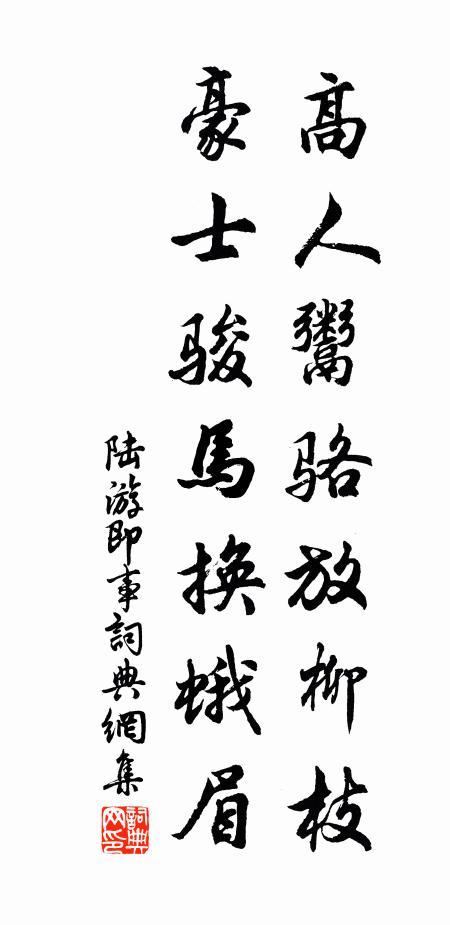 高人鬻骆放柳枝
豪士骏馬换蛾眉
陆游即事詞典網集
詞典網印